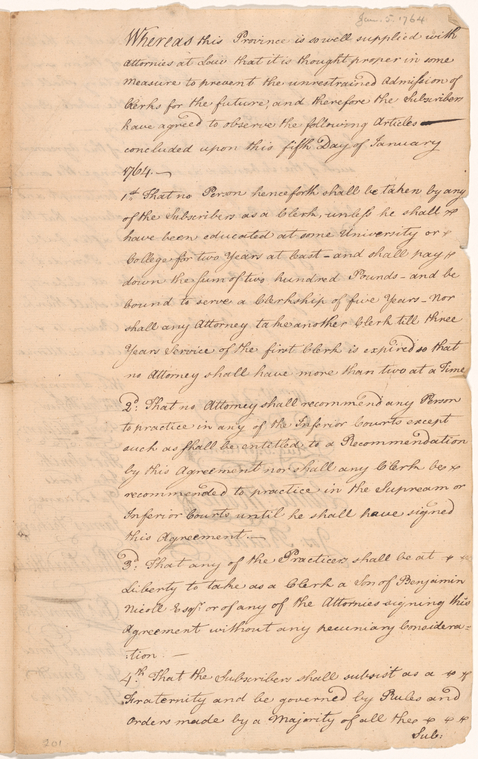 Jan. 5. 1764
Whereas this Province is so well supplied with
Attornies at Law that it is thought proper in some
Measure to prevent the unrestrained Admission of
Clerks for the future, and therefore the Subscribers
have agreed to observe the following Articles
concluded upon this fifth Day of January
1764.
1st. That no Person henceforth shall be taken by any
of the Subscribers as a Clerk, unless he shall
have been educated at some University or
College for two Years at Least - and shall pay
down the sum of two hundred Pounds - and be
bound to serve a Clerkship of five Years - nor
shall any Attorney take another Clerk till three
Years Service of the first Clerk is expired so that
no Attorney shall have more than two at a Time
2d. That no Attorney shall recommend any Person
to practice in any of the Inferior Courts except
such as shall be entitled to a Recommendation
by this Agreement nor shall any Clerk be
recommended to practice in the Supream or
Inferior Courts until he shall have signed
this Agreement
3d. That any of the Practicers shall be at
Liberty to take as a Clerk a Son of Benjamin
Nicoll Esqr. or of any of the Attornies signing this
Agreement without any pecuniary Considera-
-tion.
4th. That the Subscribers shall subsist as a
Fraternity and be governed by Rules and
Orders made by a Majority of all the
Sub:
201